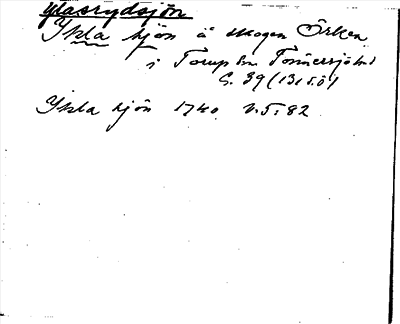 Ylasrydsjön
Ykla hjön å skogen Örken
i Torup sn Tönnersjö hd
G. 39 (131 s. ö)
Ykla hjön 1740 N.5:82